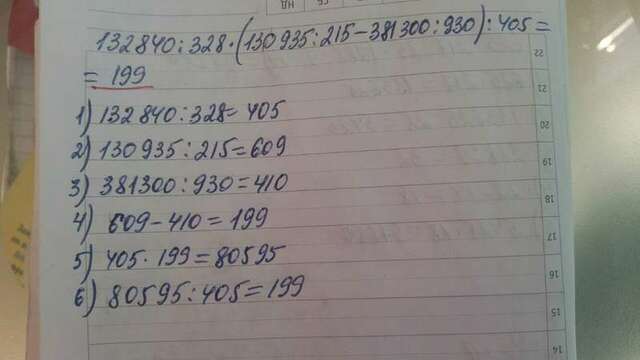 132840:328·(130935:215-381300:930):405=
=199
1) 132840:328=405
2) 130935:215=609
3) 381300:930=410
4) 609-410=199
5) 405·199=80595
6) 80595:405=199
НД
22
21
20
19
18
17
16
15
14